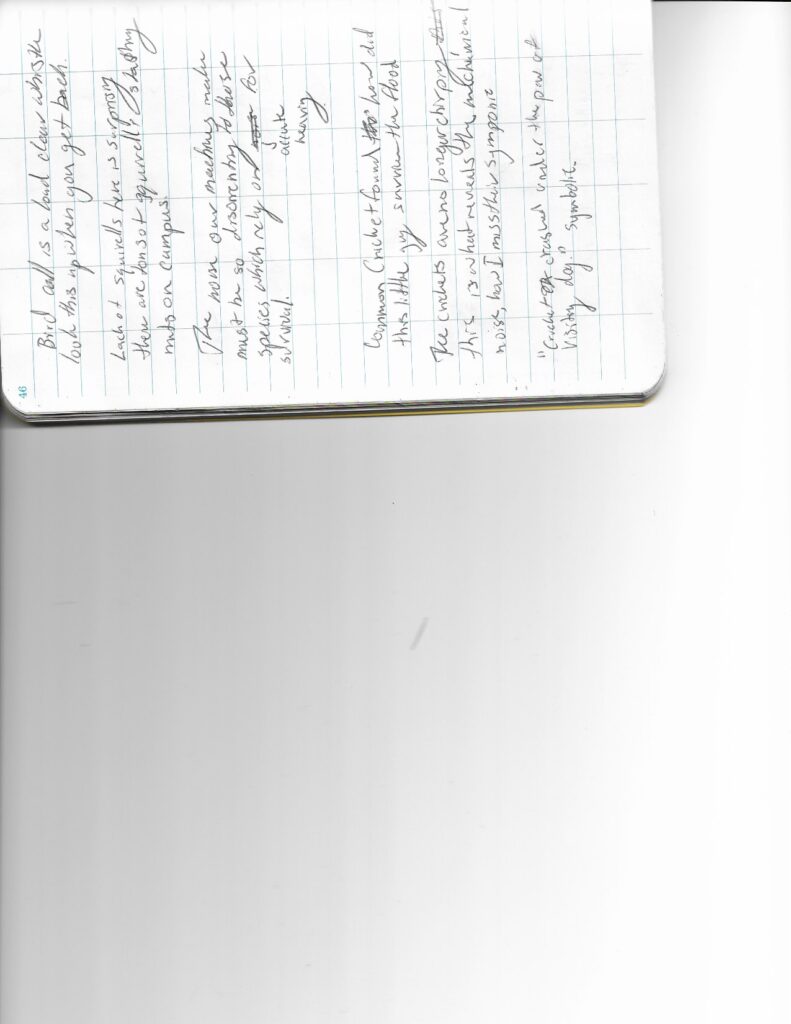 46
Bird call is a loud clear whistle
look this up when you get back.
Lack of squirells here is surprising
there are tons of squirells stashing
nuts on campus.
The noise our machines make
must be so disorienting to those
species which rely on for
survival.
accute
hearing
Common Cricket found how did
this little guy survive the flood
The crickets are no longer chirping
this is what reveals the mechanical
noise, how I miss their symponic
"Cricket crushed under the paw of
Visiting dog." Symbolic.